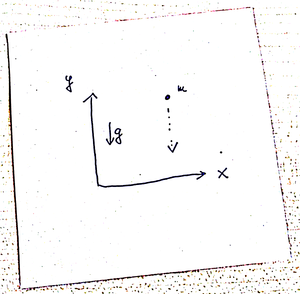 y
m
g
x